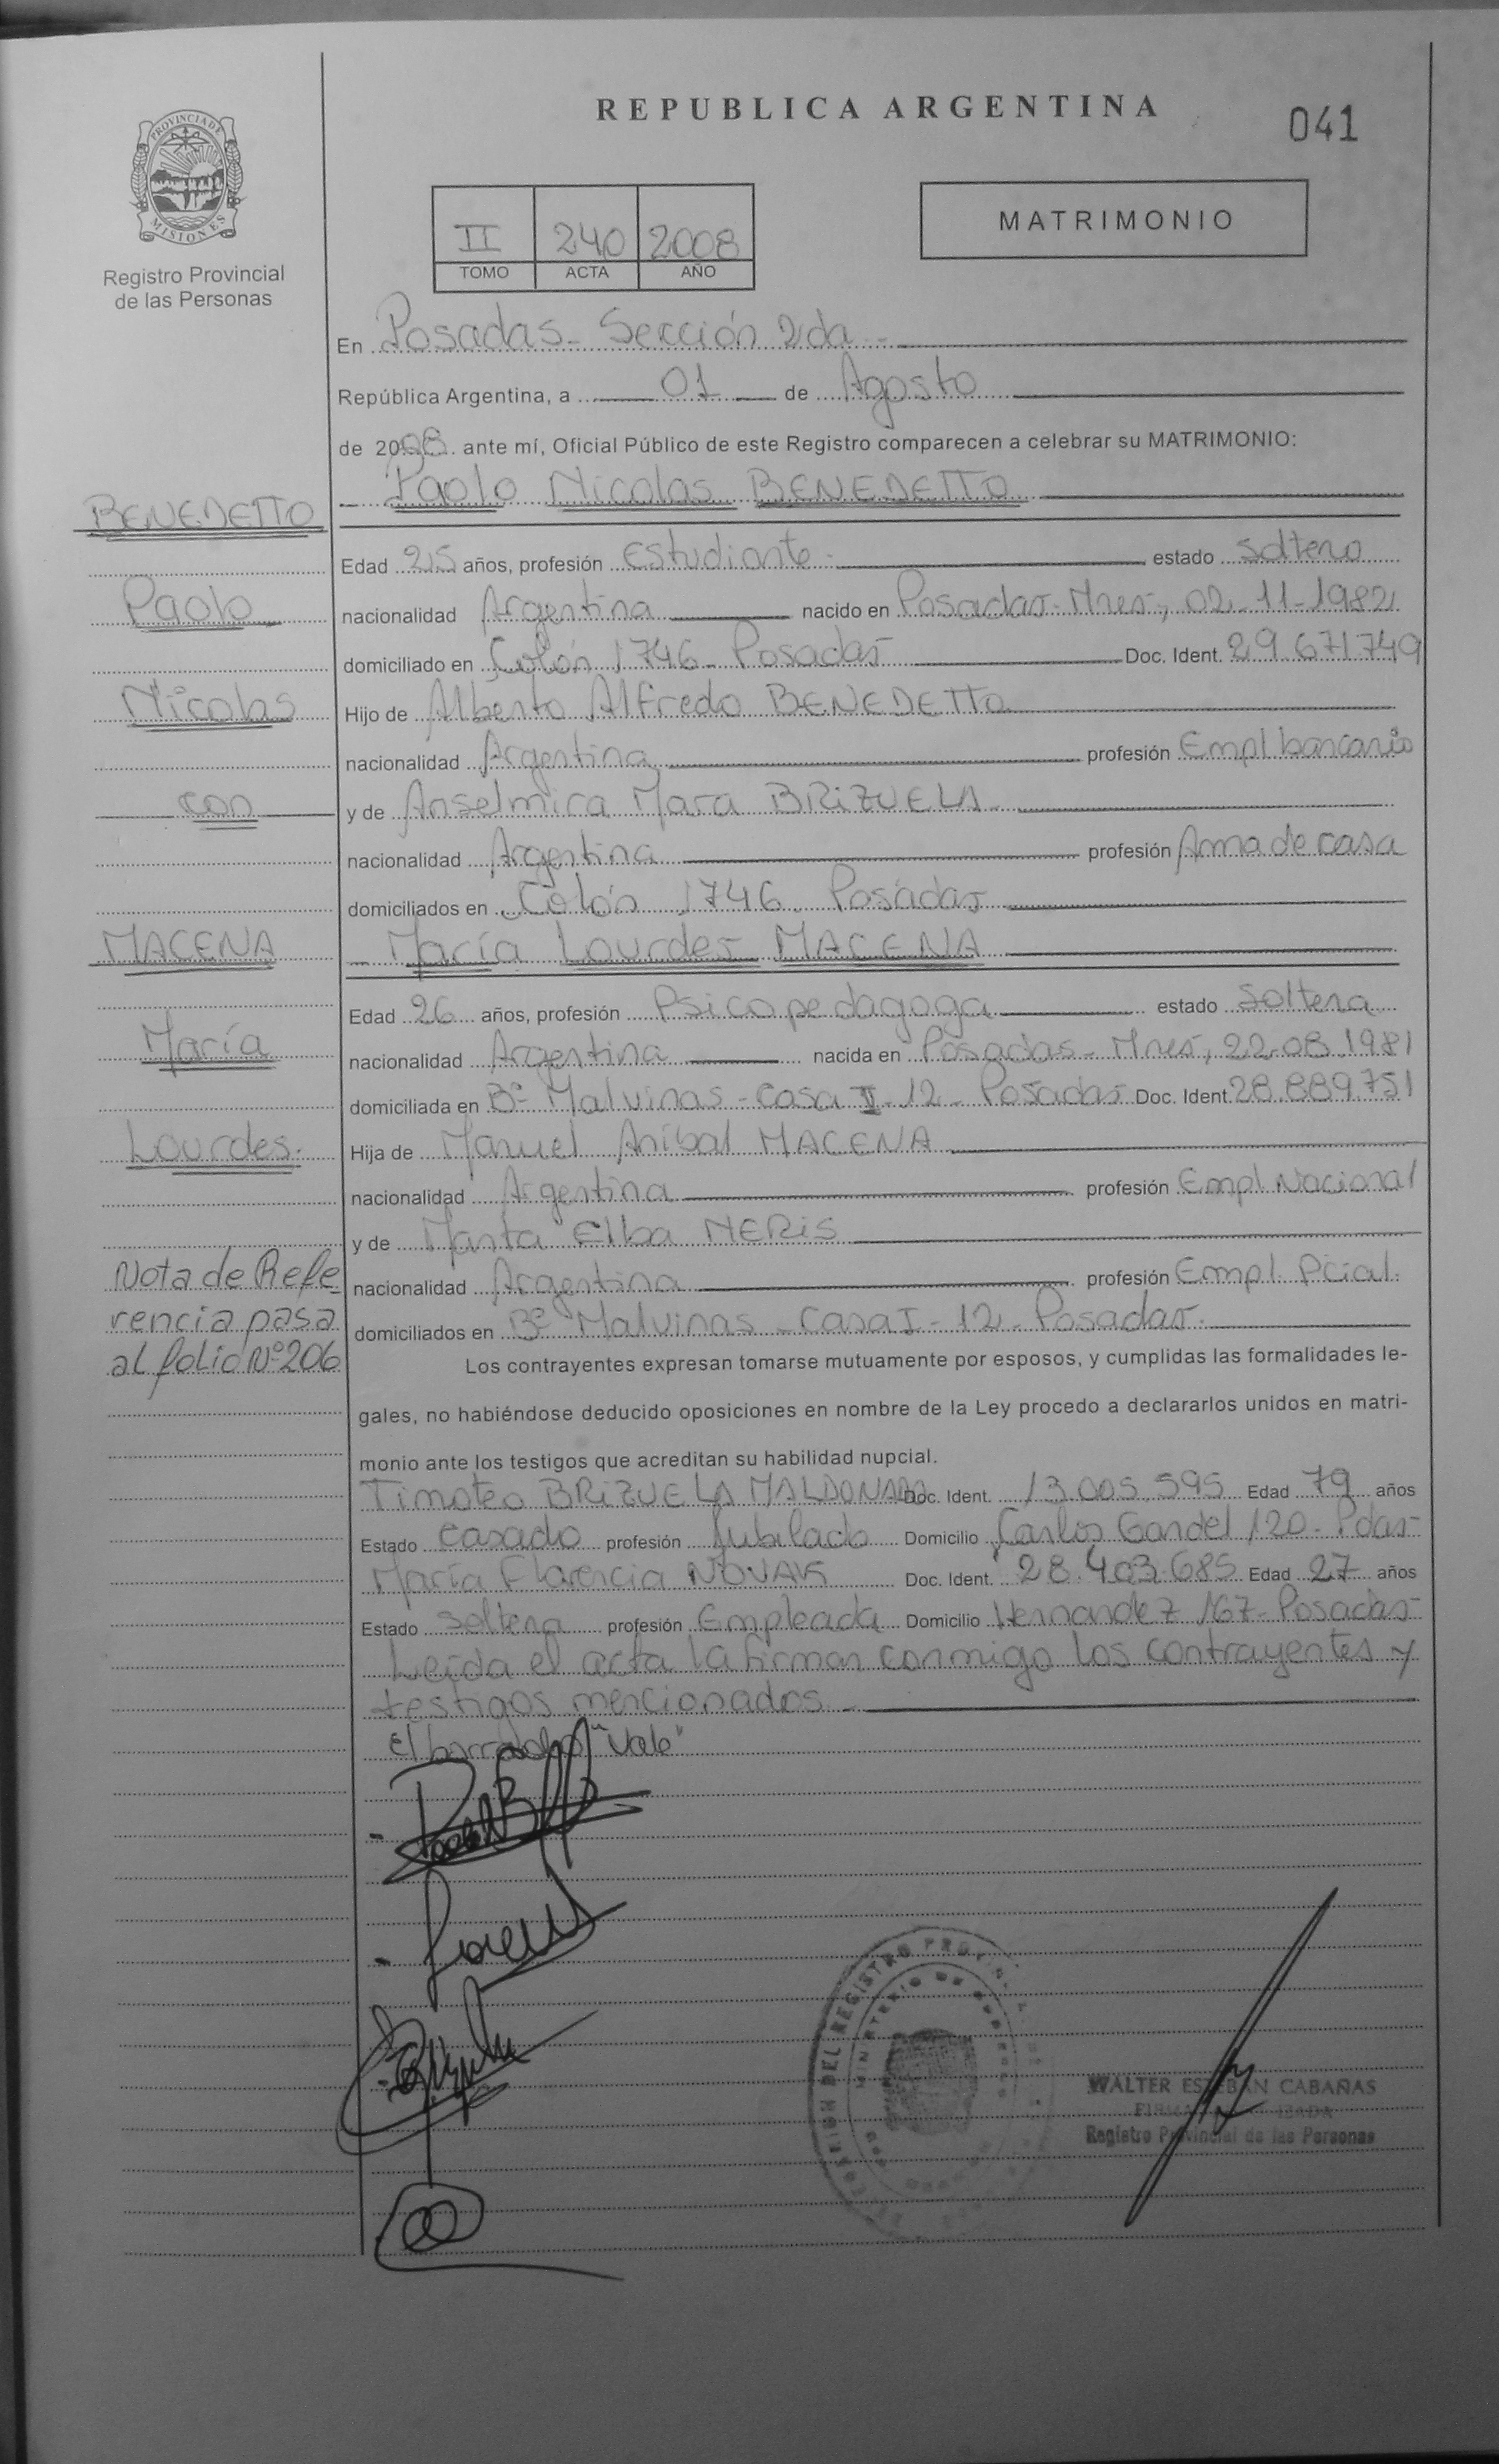 REPUBLICA ARGENTINA
041
PROVINCIA DE
MISIONES
Registro Provincial
de las Personas
II 240 2008
TOMO ACTA AÑO
MATRIMONIO
En Posadas - Sección 2da -
República Argentina, a 01 de Agosto
de 2008. ante mí, Oficial Público de este Registro comparecen a celebrar su MATRIMONIO:
- Paolo Nicolas BENEDETTO
BENEDETTO
Edad 25 años, profesión Estudiante - estado Soltero
Paolo
nacionalidad Argentina nacido en Posadas - Mnes, 02-11-1982
domiciliado en Colón 1746 - Posadas Doc. Ident. 29.671.749
Nicolas
Hijo de Alberto Alfredo BENEDETTO
nacionalidad Argentina profesión Empl bancario
con
y de Anselmira Mara BRIZUELA
nacionalidad Argentina profesión Ama de casa
domiciliados en Colón 1746 - Posadas
MACENA
- María Lourdes MACENA
Edad 26 años, profesión Psicopedagoga estado Soltera
María
nacionalidad Argentina nacida en Posadas - Mnes, 22-08-1981
domiciliada en Bº Malvinas - casa I - 12 - Posadas Doc. Ident. 28.889.751
Lourdes.
Hija de Manuel Anibal MACENA
nacionalidad Argentina profesión Empl Nacional
y de Marta Elba NERIS
Nota de Refe
nacionalidad Argentina profesión Empl. Pcial.
rencia pasa
domiciliados en Bº Malvinas - Casa I - 12 - Posadas.
al folio Nº 206
Los contrayentes expresan tomarse mutuamente por esposos, y cumplidas las formalidades le-
gales, no habiéndose deducido oposiciones en nombre de la Ley procedo a declararlos unidos en matri-
monio ante los testigos que acreditan su habilidad nupcial.
Timoteo BRIZUELA MALDONADO Doc. Ident. 13.005.595 Edad 79 años
Estado Casado profesión Jubilado Domicilio Carlos Gardel 120 - Pdas-
María Florencia NOVAK Doc. Ident. 28.403.685 Edad 27 años
Estado Soltera profesión Empleada Domicilio Hernandez 167 - Posadas-
Leida el acta la firman conmigo los contrayentes y
testigos mencionados -
El borroneado "Vale"
WALTER ESTEBAN CABAÑAS
Registro Provincial de las Personas